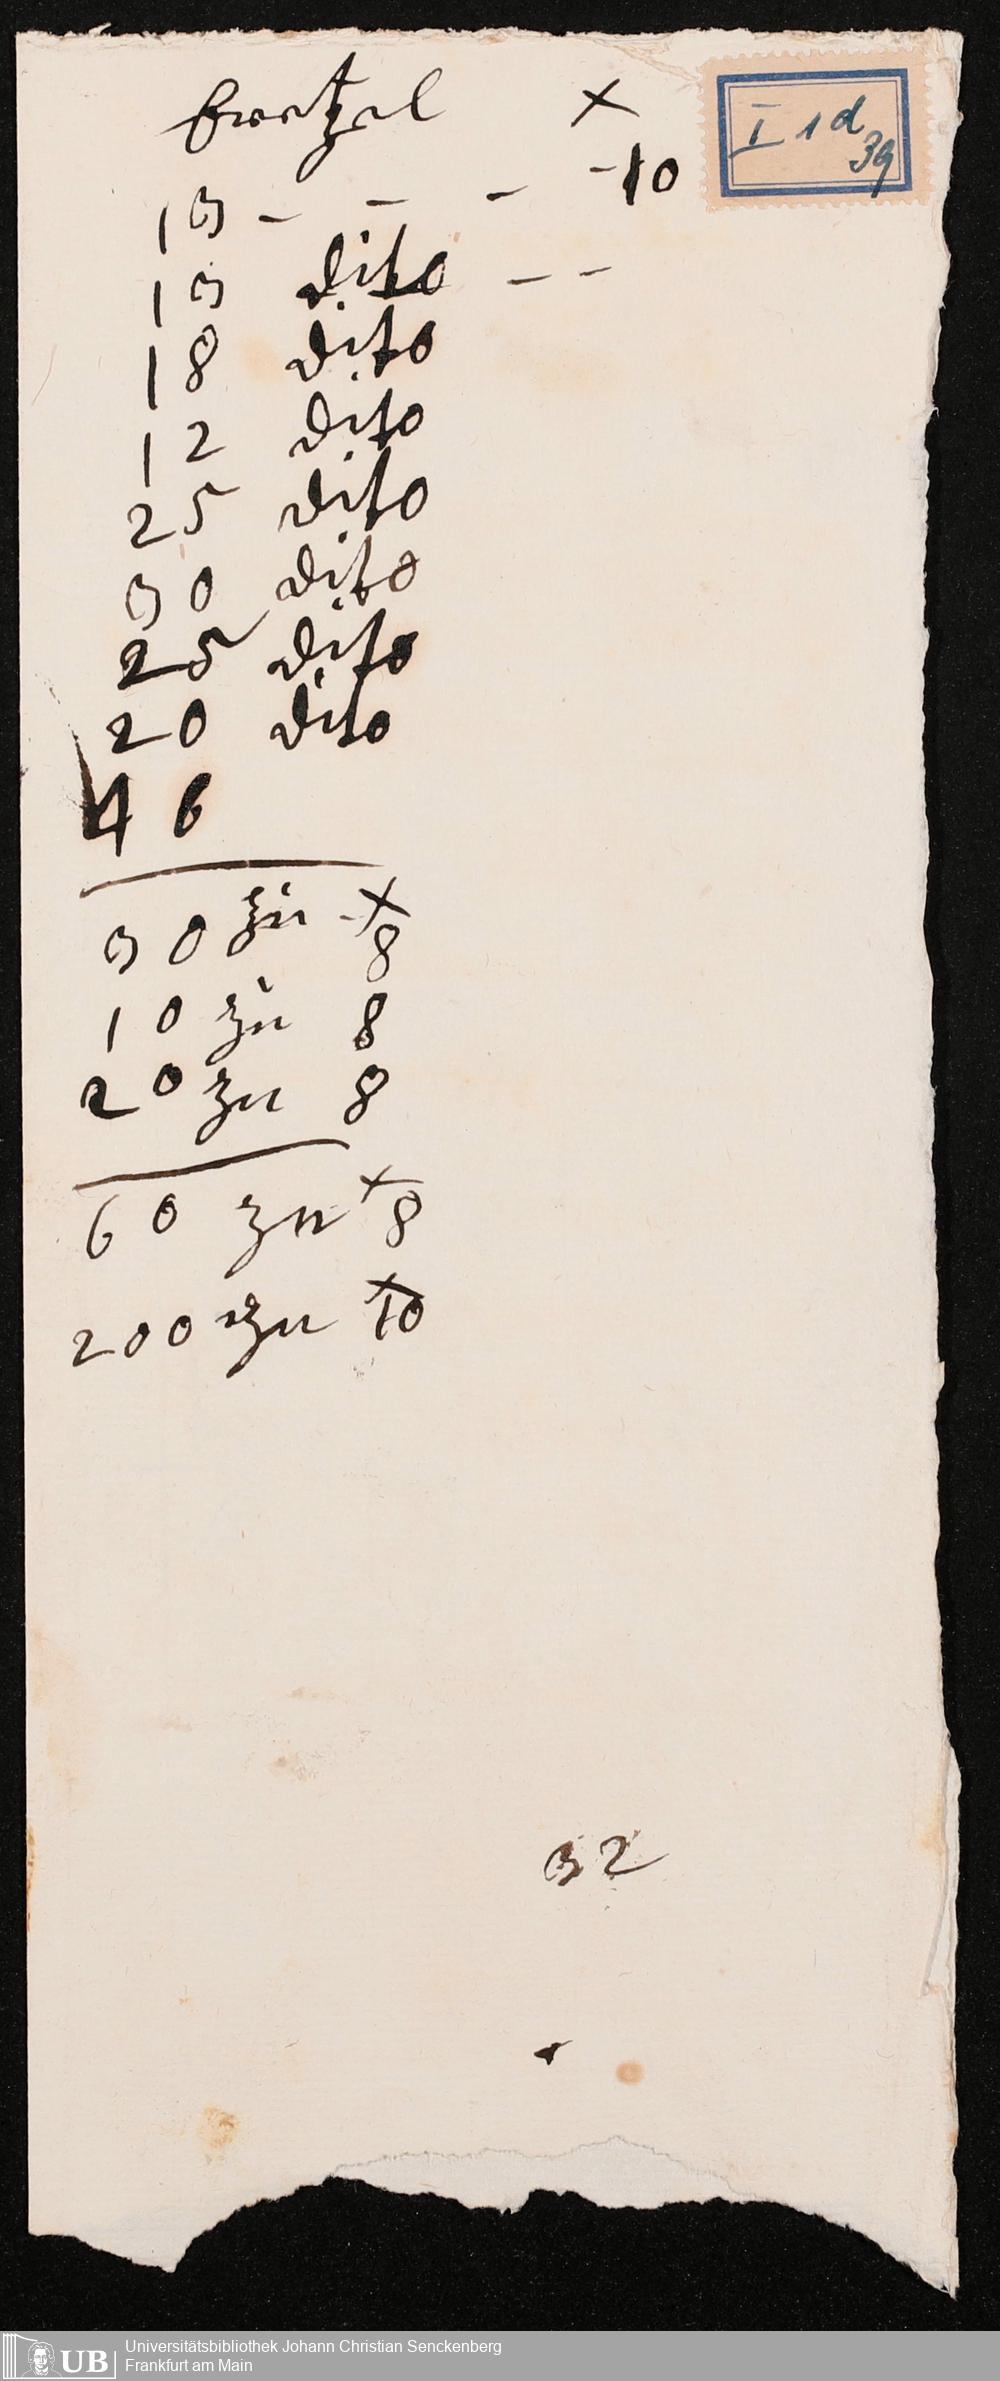 bretzel x
I 1 d
39
13 - - - - 10
13 dito - -
18 dito
12 dito
25 dito
30 dito
25 dito
20 dito
46
30 zu x 8
10 zu 8
20 zu 8
60 zu x 8
200 zu x 10
32
UB
Universitätsbibliothek Johann Christian Senckenberg
Frankfurt am Main